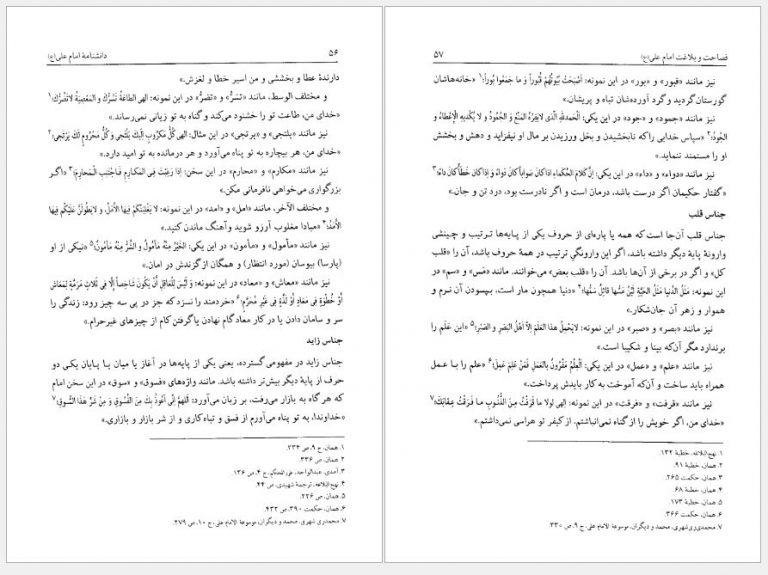 ۵۶ دانشنامهٔ امام علی(ع)
دارندهٔ عطا و بخششی و من اسیر خطا و لغزش.»
و مختلف الوسط، مانند «تسرّ» و «تضرّ» در این نمونه: الهی الطاعَةُ تَسُرُّكَ و المَعصِیَةُ لاتَضُرُّكَ؛۱
«خدای من، طاعت تو را خشنود می‌کند و گناه به تو زیانی نمی‌رساند.»
نیز مانند «یلتجی» و «یرتجی» در این مثال: الهی کُلُّ مَکرُوبٍ اِلَیكَ یَلتَجی وَ کُلُّ مَحرُومٍ لَكَ یَرتَجی؛۲
«خدای من، هر بیچاره به تو پناه می‌آورد و هر درمانده به تو امید دارد.»
نیز مانند «مکارم» و «محارم» در این سخن: اِذا رَغِبتَ فِی المَکارِمِ فَاجتَنِبِ المَحارِمَ؛۳ «اگر
بزرگواری می‌خواهی نافرمانی مکن.»
و مختلف الآخر، مانند «امل» و «امد» در این نمونه: لا یَغلِبَنَّکُم فِیهَا الاَمَلُ، و لایَطُولَنَّ عَلَیکُم فِیهَا
الاَمَدُ؛۴ «مبادا مغلوب آرزو شوید و آهنگ ماندن کنید.»
نیز مانند «مأمول» و «مأمون» در این یکی: الخَیرُ مِنْهُ مَأمُولٌ و الشَّرُّ مِنْهُ مَأمُونٌ؛۵ «نیکی از او
(پارسا) بیوسان (مورد انتظار) و همگان از گزندش در امان.»
نیز مانند «معاش» و «معاد» در این نمونه: وَ لَیْسَ لِلْعاقِلِ أَنْ یَکُونَ شاخِصاً اِلّا فِی ثَلاثٍ مَرَمَّةٍ لِمَعاشٍ
أَوْ خُطْوَةٍ فِی مَعادٍ أَوْ لَذَّةٍ فِی غَیرِ مُحَرَّمٍ؛۶ «خردمند را نسزد که جز در پی سه چیز رود: زندگی را
سر و سامان دادن یا در کار معاد گام نهادن یا گرفتن کام از چیزهای غیرحرام.»
جناس زاید
جناس زاید در مفهومی گسترده، یعنی یکی از پایه‌ها در آغاز یا میان یا پایان یکی دو
حرف از پایهٔ دیگر بیش‌تر داشته باشد. مانند واژه‌های «فسوق» و «سوق» در این سخن امام
که هر گاه به بازار می‌رفت، بر زبان می‌آورد: اَللّهُمَّ اِنّی اَعُوذُ بِكَ مِنَ الفُسُوقِ وَ مِنْ شَرِّ هذَا السُّوقِ؛۷
«خداوندا، به تو پناه می‌آورم از فسق و تباه‌کاری و از شر بازار و بازاری.»
۱. همان، ج ۹، ص ۲۳۴.
۲. همان، ص ۳۳۶.
۳. آمدی، عبدالواحد، غررالحکم، ج ۴، ص ۱۳۶.
۴. نهج‌البلاغه، ترجمهٔ شهیدی، ص ۴۴.
۵. همان، ص ۲۲۶.
۶. همان، حکمت ۳۹۰، ص ۴۳۲.
۷. محمدی ری شهری، محمد و دیگران، موسوعة الامام علی، ج ۱۰، ص ۲۷۹.
فصاحت و بلاغت امام علی(ع) ۵۷
نیز مانند «قبور» و «بور» در این نمونه: اَصْبَحَتْ بُیُوتُهُمْ قُبُوراً وَ ما جَمَعُوا بُوراً؛۱ «خانه‌هاشان
گورستان گردید و گرد آورده‌شان تباه و پریشان.»
نیز مانند «جمود» و «جود» در این یکی: اَلْحَمْدُلِلّهِ الَّذی لایَفِرُهُ المَنْعُ وَ الجُمُودُ وَ لا یُکْدِیهِ الْإعْطاءُ وَ
الجُودُ؛۲ «سپاس خدایی را که نابخشیدن و بخل ورزیدن بر مال او نیفزاید و دهش و بخشش
او را مستمند ننماید.»
نیز مانند «دواء» و «داء» در این یکی: اِنَّ کَلامَ الحُکَماءِ اِذا کانَ صَواباً کانَ دَواءً وَ اِذا کانَ خَطَأً کانَ داءً؛۳
«گفتار حکیمان اگر درست باشد، درمان است و اگر نادرست بود، درد تن و جان.»
جناس قلب
جناس قلب آن‌جا است که همه یا پاره‌ای از حروف یکی از پایه‌ها ترتیب و چینشی
وارونهٔ پایهٔ دیگر داشته باشد، اگر این وارونگی ترتیب در همهٔ حروف باشد، آن را «قلب
کل» و اگر در برخی از آن‌ها باشد. آن را «قلب بعض» می‌خوانند. مانند «مَس» و «سم» در
این نمونه: مَثَلُ الدُّنیا مَثَلُ الحَیَّةِ لَیِّنٌ مَسُّها قاتِلٌ سَمُّها؛۴ «دنیا همچون مار است، بپسودن آن نرم و
هموار و زهر آن جان‌شکار.»
نیز مانند «بصر» و «صبر» در این نمونه: لایَحمِلُ هذَا العَلَمَ اِلاّ اَهْلُ البَصَرِ و الصَّبرِ؛۵ «این علَم را
برندارد مگر آن‌که بینا و شکیبا است.»
نیز مانند «علم» و «عمل» در این یکی: اَلْعِلْمُ مَقْرُونٌ بِالعَمَلِ فَمَنْ عَلِمَ عَمِلَ؛۶ «علم را با عمل
همراه باید ساخت و آن‌که آموخت به کار بایدش پرداخت.»
نیز مانند «قرفت» و «فرقت» در این نمونه: الهی لولا ما قَرَفْتُ مِنَ الذُّنُوبِ ما فَرَقْتُ عِقابَكَ؛۷
«خدای من، اگر خویش را از گناه نمی‌انباشتم، از کیفر تو هراسی نمی‌داشتم.»
۱. نهج‌البلاغه، خطبهٔ ۱۳۲.
۲. همان، خطبهٔ ۹۱.
۳. همان، حکمت ۲۶۵.
۴. همان، خطبهٔ ۶۸.
۵. همان، خطبهٔ ۱۷۳.
۶. همان، حکمت ۳۶۶.
۷. محمدی‌ری شهری، محمد و دیگران، موسوعة الامام علی، ج ۹، ص ۳۳۰.